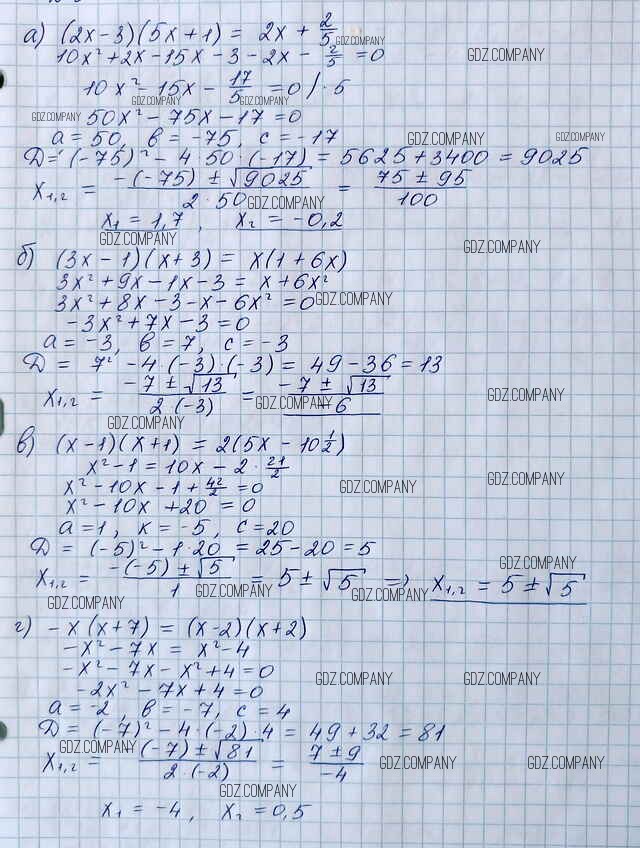 а) (2x-3)(5x+1) = 2x + 2/5
10x² + 2x - 15x - 3 - 2x - 2/5 = 0
10x² - 15x - 17/5 = 0 / · 5
50x² - 75x - 17 = 0
a = 50, b = -75, c = -17
D = (-75)² - 4 · 50 · (-17) = 5625 + 3400 = 9025
x₁,₂ = (-(-75) ± √9025)/(2 · 50) = (75 ± 95)/100
x₁ = 1,7, x₂ = -0,2
б) (3x - 1)(x + 3) = x(1 + 6x)
3x² + 9x - 1x - 3 = x + 6x²
3x² + 8x - 3 - x - 6x² = 0
-3x² + 7x - 3 = 0
a = -3, b = 7, c = -3
D = 7² - 4 · (-3) · (-3) = 49 - 36 = 13
x₁,₂ = (-7 ± √13)/(2 · (-3)) = (-7 ± √13)/-6
в) (x - 1)(x + 1) = 2(5x - 10 1/2)
x² - 1 = 10x - 2 · 21/2
x² - 10x - 1 + 42/2 = 0
x² - 10x + 20 = 0
a = 1, k = -5, c = 20
D = (-5)² - 1 · 20 = 25 - 20 = 5
x₁,₂ = (-(-5) ± √5)/1 = 5 ± √5 => x₁,₂ = 5 ± √5
г) -x(x + 7) = (x - 2)(x + 2)
-x² - 7x = x² - 4
-x² - 7x - x² + 4 = 0
-2x² - 7x + 4 = 0
a = -2, b = -7, c = 4
D = (-7)² - 4 · (-2) · 4 = 49 + 32 = 81
x₁,₂ = (-(-7) ± √81)/(2 · (-2)) = (7 ± 9)/-4
x₁ = -4, x₂ = 0,5
GDZ.COMPANY